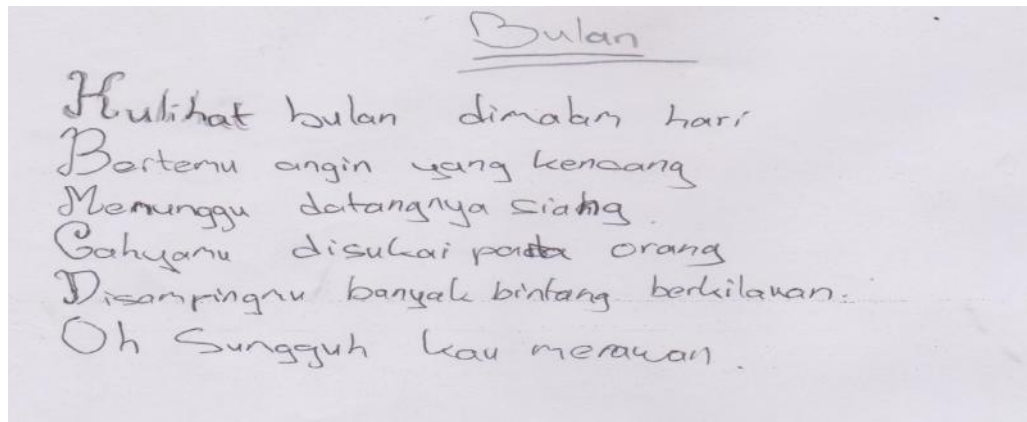 Bulan
Kulihat bulan dimalam hari
Bertemu angin yang kencang
Menunggu datangnya siang.
Cahyamu disukai para orang
Disampingmu banyak bintang berkilauan.
Oh Sungguh kau merawan.